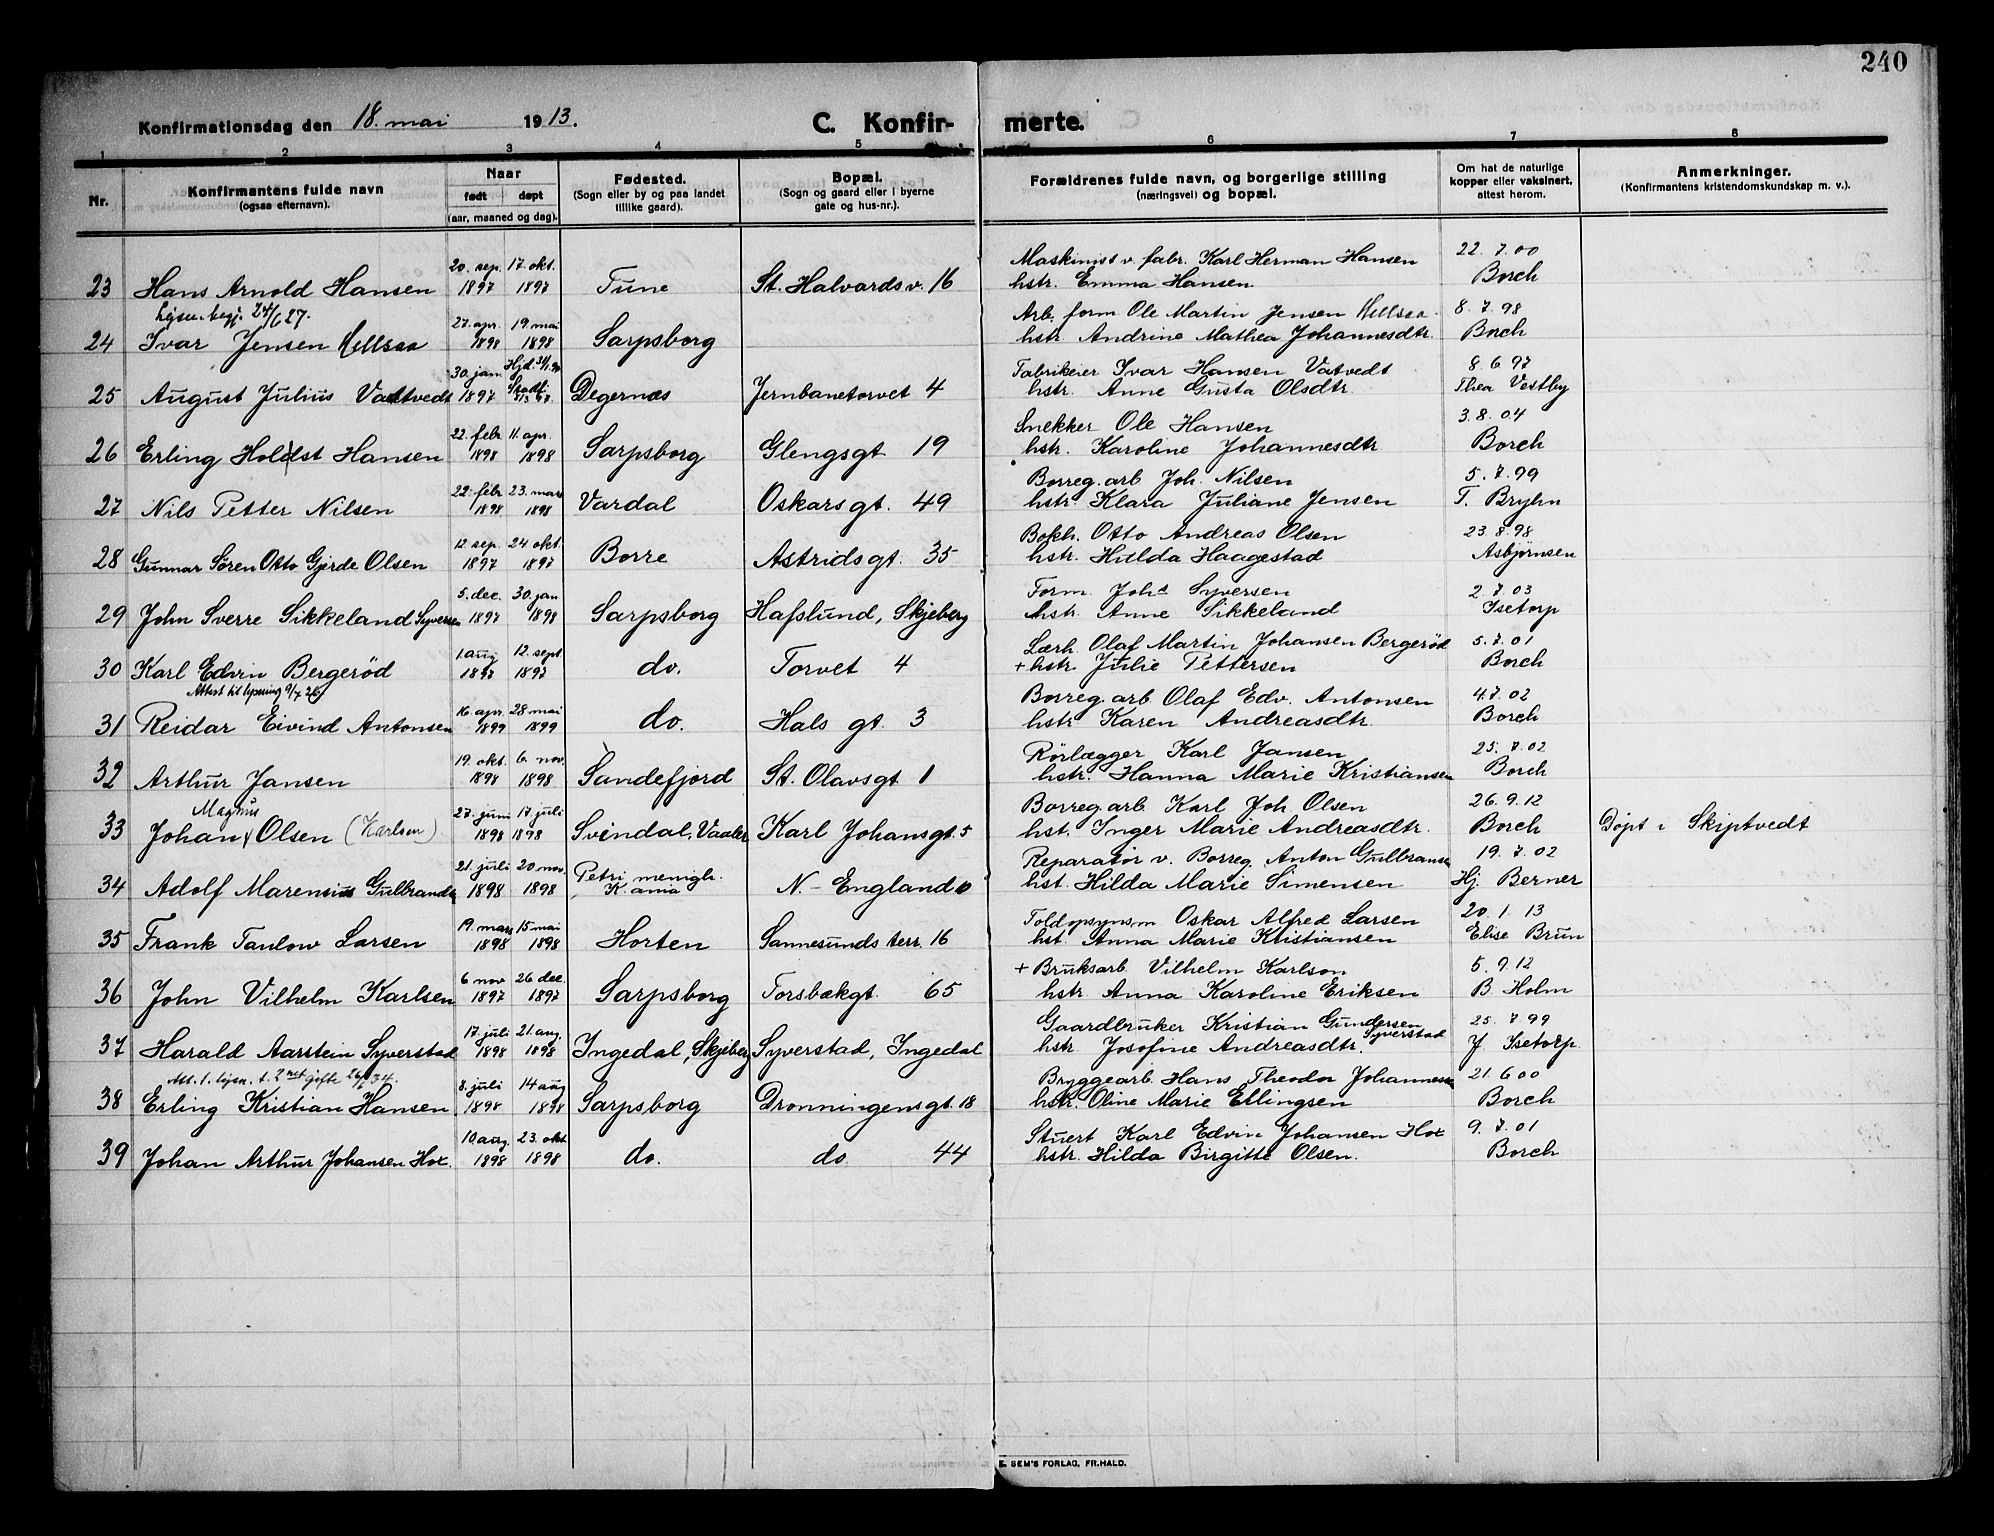 240
Konfirmationsdag den 18. mai 1913.
C. Konfir- merte.
1 2 3 4 5 6 7 8
Nr.
Konfirmantens fulde navn
(ogsaa efternavn).
Naar
født døpt
(aar, maaned og dag).
Fødested.
(Sogn eller by og paa landet
tillike gaard).
Bopæl.
(Sogn og gaard eller i byerne
gate og hus-nr.).
Forældrenes fulde navn, og borgerlige stilling
(næringsvei) og bopæl.
Om hat de naturlige
kopper eller vaksinert,
attest herom.
Anmerkninger.
(Konfirmantens kristendomskundskap m. v.).
20. sep. 17. okt. Maskinist v. fabr. Karl Herman Hansen 22. 7. 00
23 Hans Arnold Hansen 1897 1897 Tune St. Halvardsv. 16 hstr. Emma Hansen Borch
lysn. begj. 24/6 27.
27. apr. 19. mai Arb. form. Ole Martin Jensen Hellsaa 8. 7. 98
24 Ivar Jensen Hellsaa 1898 1898 Sarpsborg hstr. Andrine Mathea Johannesdtr. Borch
30. jan. Hjd. Fabrikeier Ivar Hansen Vatvedt 8. 6. 97
25 August Julius Vatvedt 1897 Stadf. Degernæs Jernbanetorvet 4 hstr. Anne Gusta Olsdtr. Thea Vestby
22. febr. 11. apr. Snekker Ole Hansen 3. 8. 04
26 Erling Holst Hansen 1898 1898 Sarpsborg Glengsgt 19 hstr. Karoline Johannesdtr Borch
22. febr. 23. mars Borreg. arb. Joh. Nilsen 5. 7. 99
27 Nils Petter Nilsen 1898 1898 Vardal Oskarsgt. 49 hstr. Klara Juliane Jensen T. Bryhn
12. sep. 24 okt. Bokh. Otto Andreas Olsen 23. 8. 98
28 Gunnar Sören Otto Gjerde Olsen 1897 1897 Borre Astridsgt. 35 hstr. Hilda Haagestad Asbjørnsen
5. dec. 30. jan Form. Johs Syversen 2. 7. 03
29 John Sverre Sikkeland Syversen 1897 1898 Sarpsborg Hafslund, Skjeberg hstr. Anne Sikkeland Isetorp
1. aug 12. sept Lærh. Olaf Martin Johansen Bergerød 5. 7. 01
30 Karl Edvin Bergerød 1897 1897 do. Torvet 4 + hstr. Julie Pettersen Borch
Attest til lysning 9/4 26
16. apr. 28 mai Borreg. arb. Olaf Edv. Antonsen 4. 7. 02
31 Reidar Eivind Antonsen 1899 1899 do. Hals gt. 3 hstr. Karen Andreasdtr. Borch
19. okt. 6. nov. Rörlægger Karl Jansen 25. 7. 02
32 Arthur Jansen 1898 1898 Sandefjord St. Olavsgt 1 hstr. Hanna Marie Kristiansen Borch
Magnus 27. juni 17. juli Borreg. arb. Karl Joh. Olsen 26. 9. 12
33 Johan Olsen (Karlsen) 1898 1898 Svindal, Vaaler Karl Johansgt. 5 hst. Inger Marie Andreasdtr. Borch Døpt i Skiptvedt
21. juli 20. nov. Petri menigh. Reparatør v. Borreg. Anton Gulbransen 19. 7. 02
34 Adolf Marensius Gulbrandsen 1898 1898 K.ania N.- England 10 hst. Hilda Marie Simensen Hj. Berner
19. mars 15. mai Toldopsynsm Oskar Alfred Larsen 20. 1. 13
35 Frank Tanlow Larsen 1898 1898 Horten Sannesunds terr. 16 hst. Anna Marie Kristiansen Elise Brun
6 nov 26 dec. + Bruksarb. Vilhelm Karlson 5. 9. 12
36 John Vilhelm Karlsen 1897 1897 Sarpsborg Torsbækgt. 65 hstr. Anna Karoline Eriksen B. Holm
17. juli 21. aug. Gaardbruker Kristian Gundersen Syverstad 25. 7. 99
37 Harald Aarstein Syverstad 1898 1898 Ingedal, Skjeberg Syverstad, Ingedal hstr Josofine Andreasdtr. J. Isetorp
Att. t. lysn. t. 2net gifte 26/5 34.
8. juli 14 aug Bryggearb. Hans Theodor Johannesen 21. 6 00
38 Erling Kristian Hansen 1898 1898 Sarpsborg Dronningensgt. 18 hstr. Oline Marie Ellingsen Borch
10 aug. 23. okt. Stuert Karl Edvin Johansen Hox 9. 7. 01
39 Johan Arthur Johansen Hox. 1898 1898 do. do. 44 hstr. Hilda Birgitte Olsen. Borch
E. SEM'S FORLAG, FR.HALD.